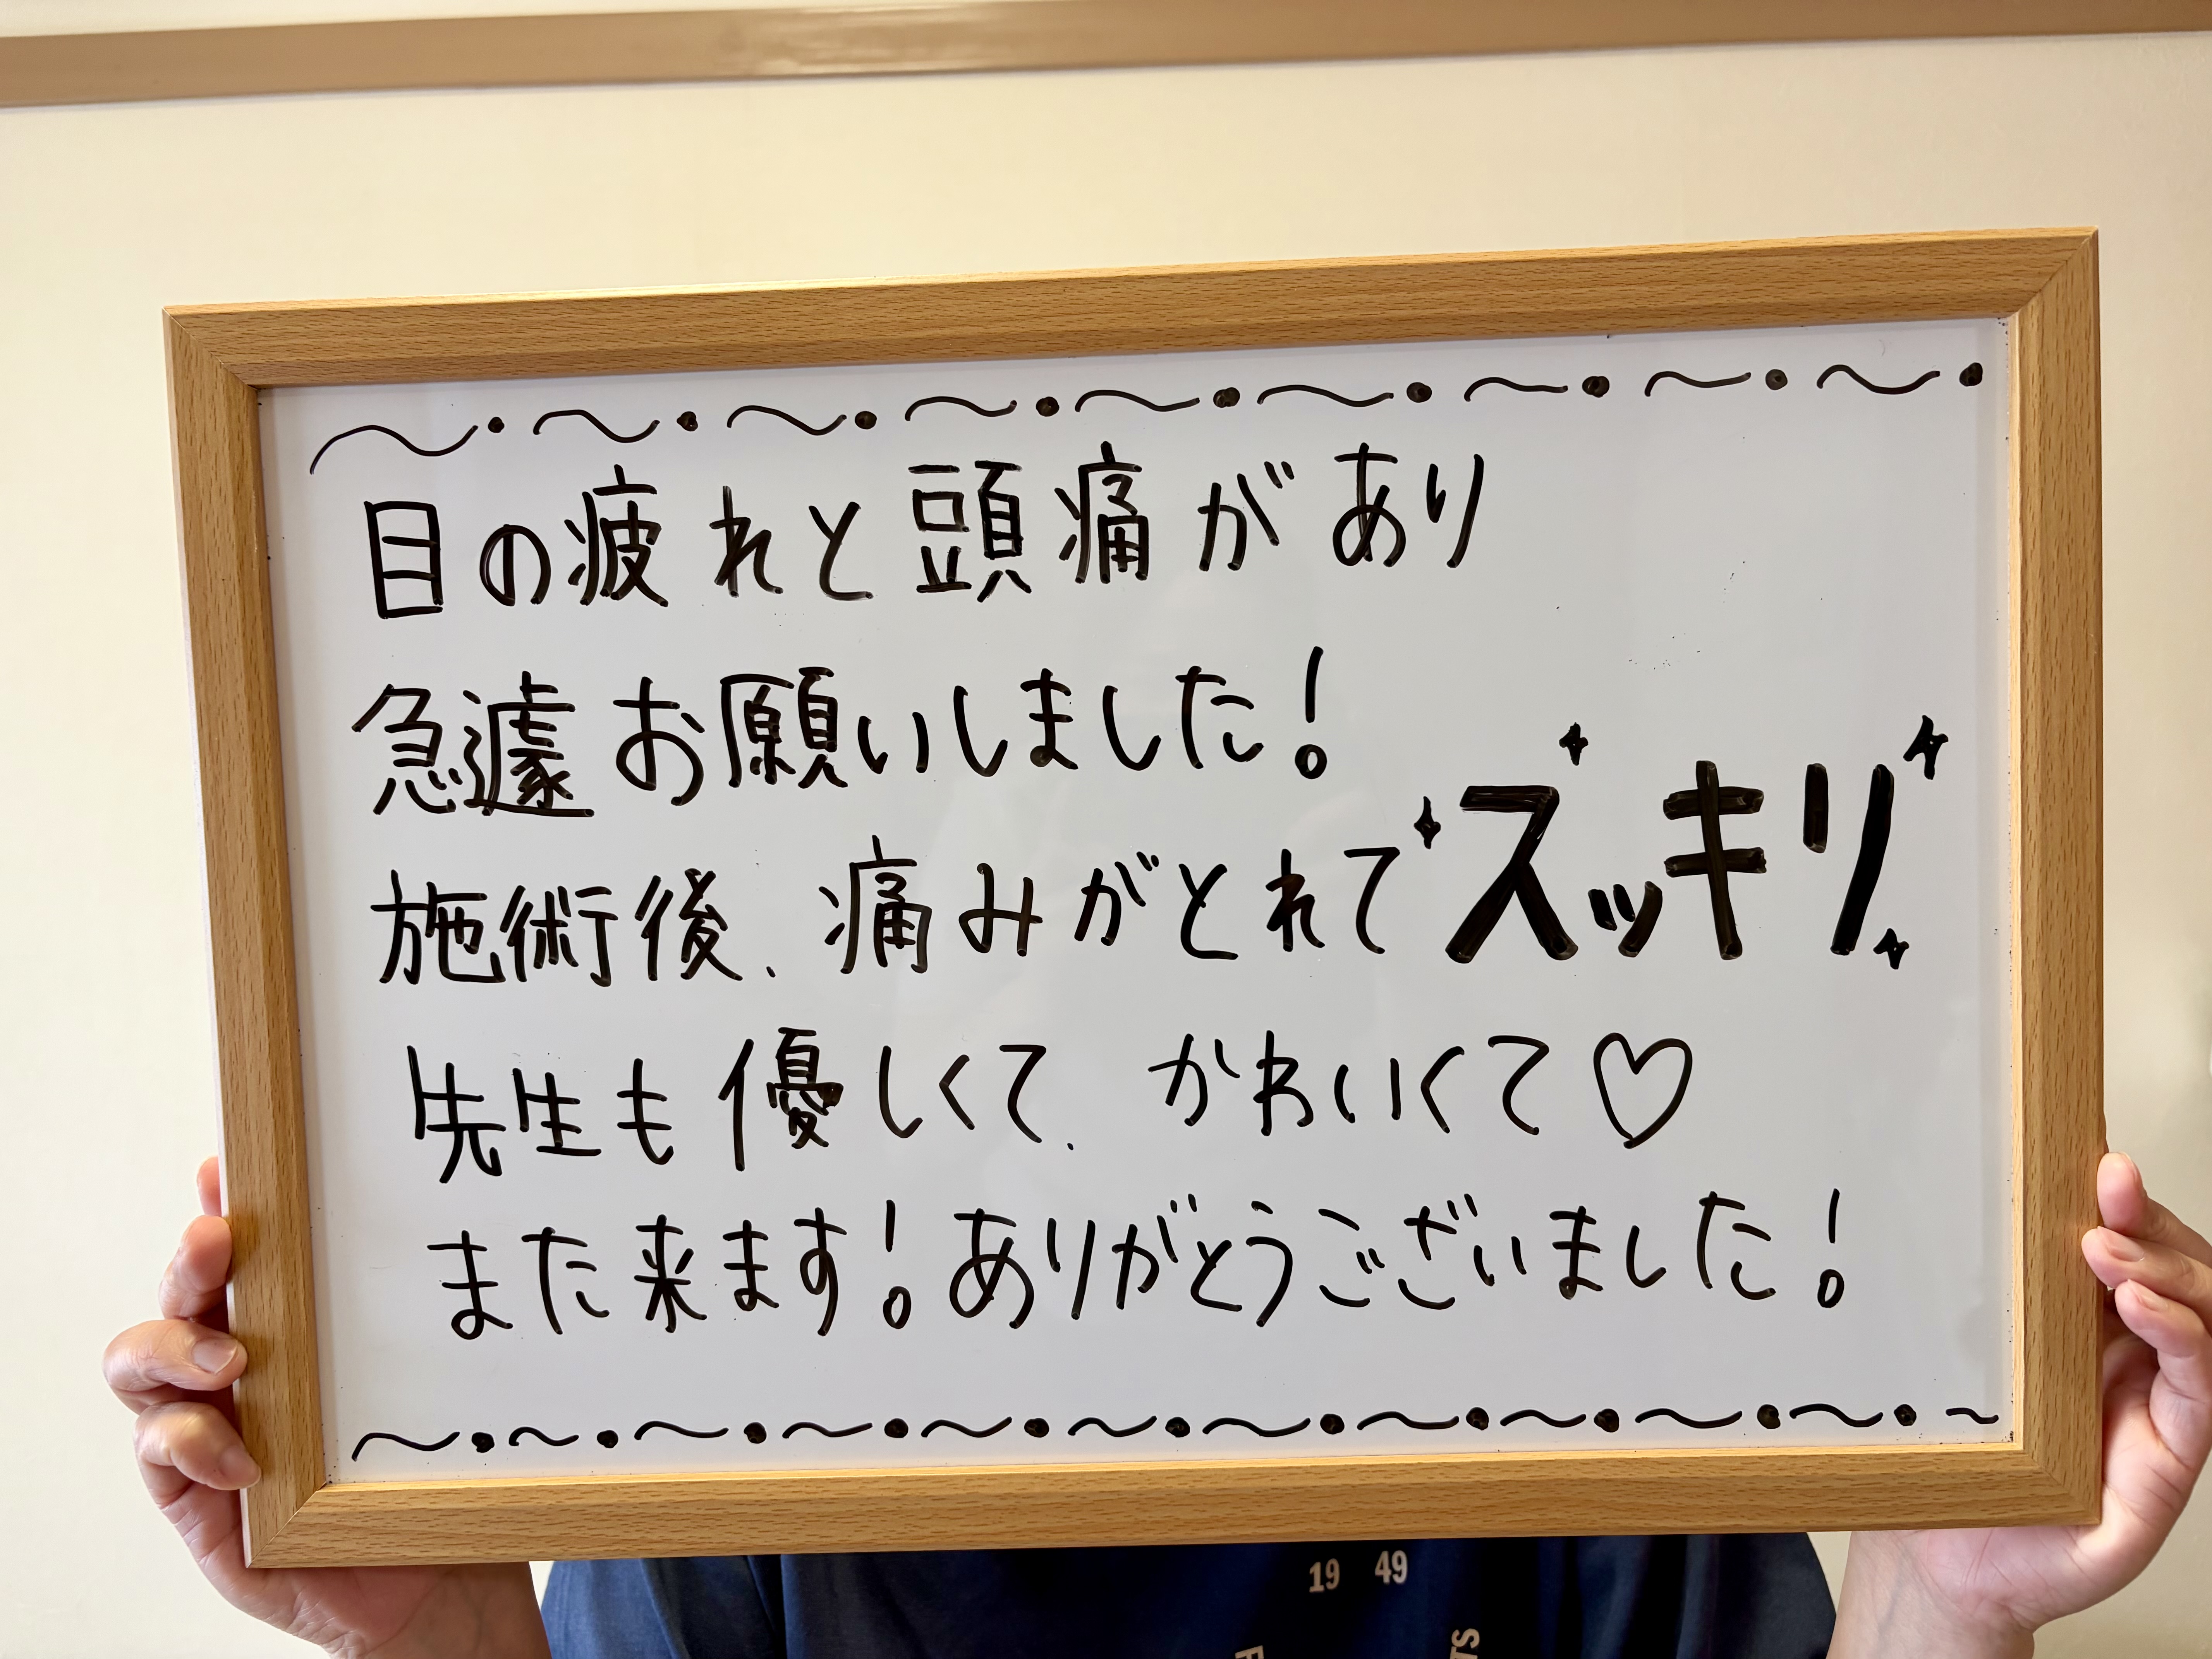 目の疲れと頭痛があり
急遽お願いしました!
施術後、痛みがとれてスッキリ
先生も優しくて、かわいくて♡
また来ます!ありがとうございました!
19 49